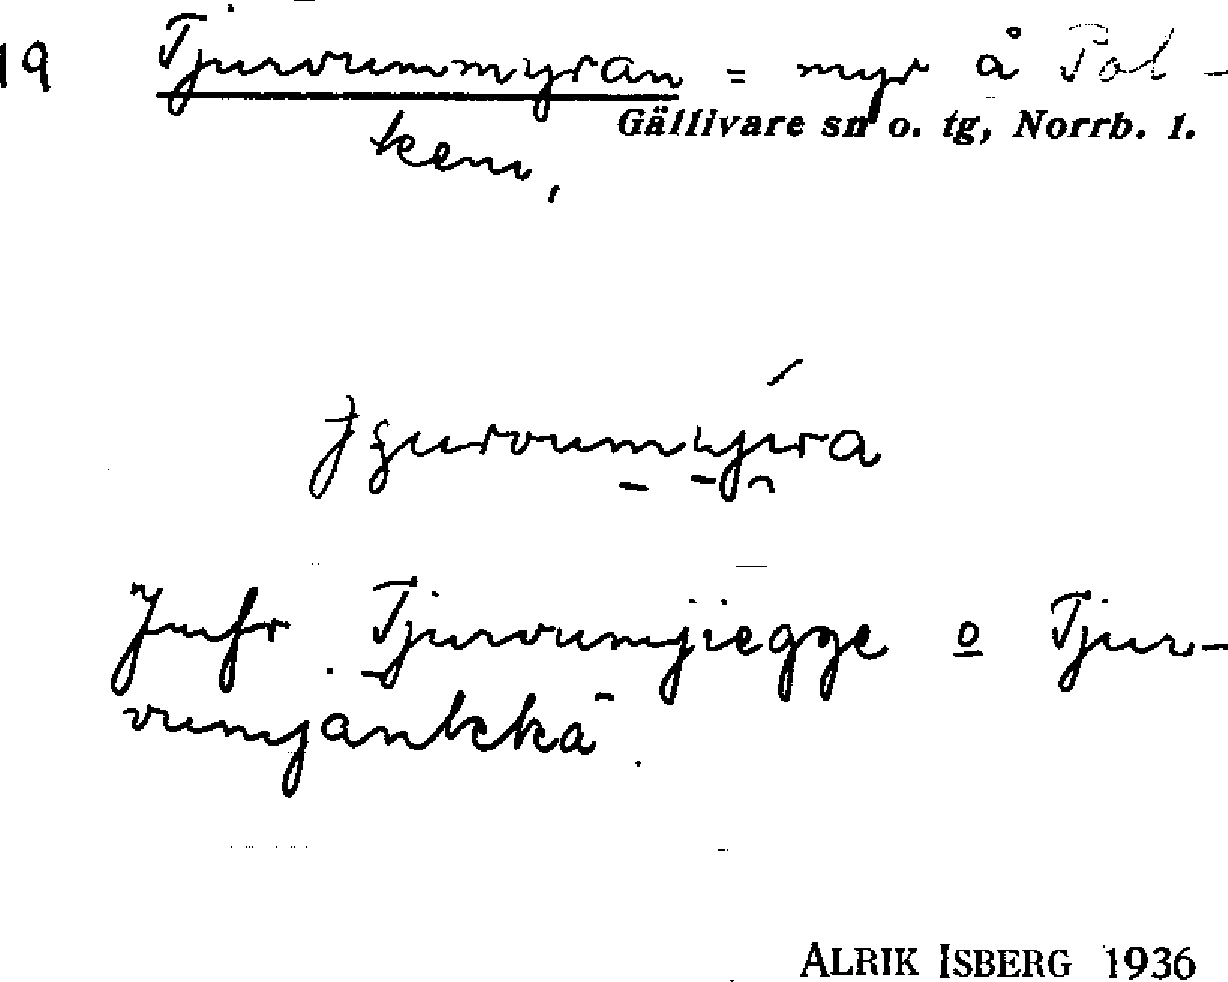 19 Tjurvummyran = myr å Pol-
Gällivare sn o. tg, Norrb. l.
ken,
Jmfr Tjurvumjiegge o Tjur-
vumjankkä
ALRIK ISBERG 1936